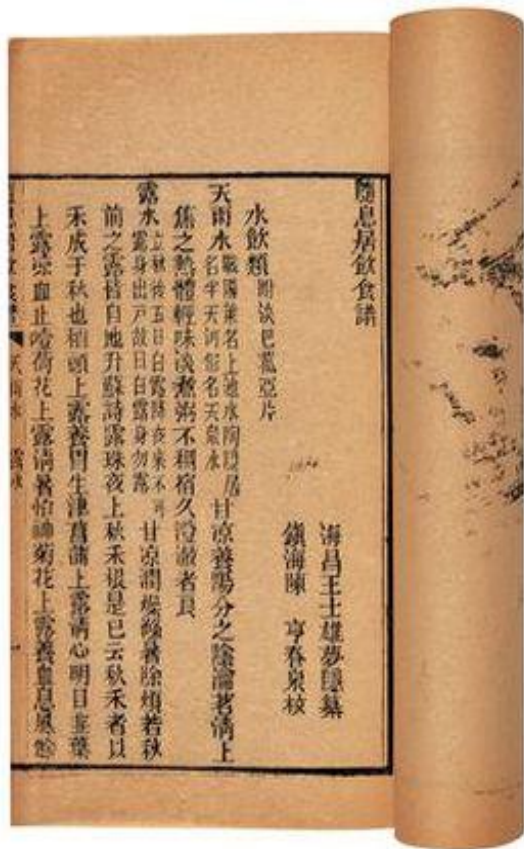 隨息居飲食譜
海昌王士雄夢隱纂
鎮海陳 亨春泉校
水飲類 附淡巴菰亞片
天雨水 戰國策名上池水陶隱居名半天河俗名天泉水 甘涼養陽分之陰瀹茗清上
焦之熱體輕味淡煮粥不稠宿久澄澈者良
露水 立秋後五日白露降夜來不可露身出戶故曰白露身勿露 甘涼潤燥滌暑除煩若秋
前之露皆自地升蘇詩露珠夜上秋禾根是已云秋禾者以
禾成于秋也稻頭上露養胃生津菖蒲上露清心明目韭葉
上露涼血止噎荷花上露清暑怡神菊花上露養血息風
天雨水 露水